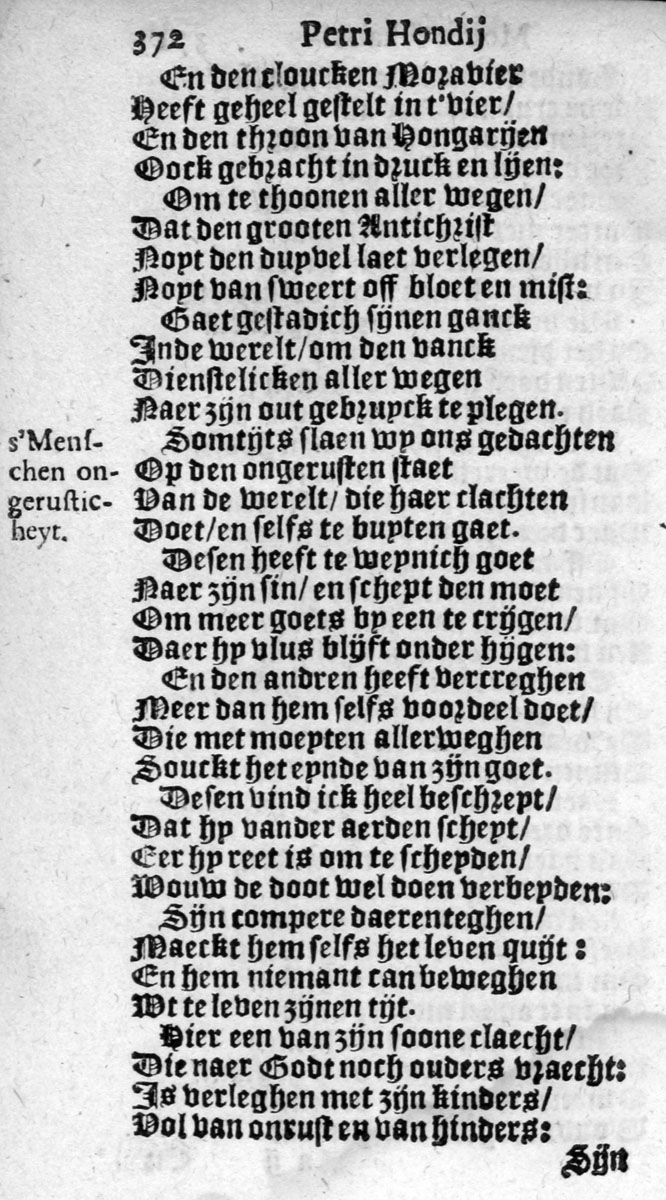 372 Petri Hondij
En den cloucken Moravier
Heeft geheel gestelt in t'vier/
En den throon van Hongarijen
Oock gebracht in druck en lijen:
Om te thoonen aller wegen/
Dat den grooten Antichrist
Noyt den duyvel laet verlegen/
Noyt van sweert off bloet en mist:
Gaet gestadich sijnen ganck
Inde werelt/om den vanck
Dienstelicken aller wegen
Naer zijn out gebruyck te plegen.
Somtijts slaen wy ons gedachten
Op den ongerusten staet
Van de werelt/ die haer clachten
Doet/en selfs te buyten gaet.
s'Mens-
chen on-
gerustic-
heyt.
Desen heeft te weynich goet
Naer zijn sin/ en schept den moet
Om meer goets by een te crijgen/
Daer hy vlus blijft onder hijgen:
En den andren heeft vercreghen
Meer dan hem selfs voordeel doet/
Die met moeyten allerweghen
Souckt het eynde van zijn goet.
Desen vind ick heel beschreyt/
Dat hy vander aerden scheyt/
Eer hy reet is om te scheyden/
Wouw de doot wel doen verbeyden:
Sijn compere daerenteghen/
Maeckt hem selfs het leven quijt:
En hem niemant can beweghen
Wt te leven zijnen tijt.
Hier een van zijn soone claecht/
Die naer Godt noch ouders vraecht:
Is verleghen met zijn kinders/
Vol van onrust en van hinders:
Sijn